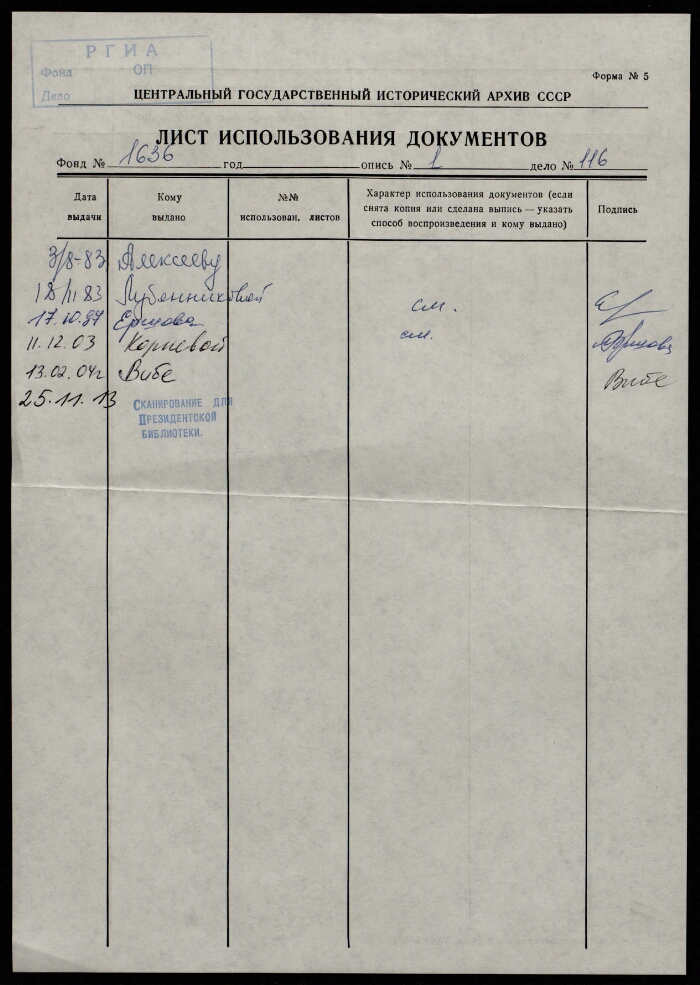 РГИА
Фонд ОП
Дело
Форма № 5
ЦЕНТРАЛЬНЫЙ ГОСУДАРСТВЕННЫЙ ИСТОРИЧЕСКИЙ АРХИВ СССР
ЛИСТ ИСПОЛЬЗОВАНИЯ ДОКУМЕНТОВ
Фонд № 1636 год опись № 1 дело № 116
Дата выдачи
Кому выдано
№№ использован. листов
Характер использования документов (если снята копия или сделана выпись — указать способ воспроизведения и кому выдано)
Подпись
3/8-83 Алексееву
18/11 83 Лубенниковой
17.10.97 Ершова см.
11.12.03 Корневой см.
13.02.04г Вибе Вибе
25.11.13 Сканирование для
Президентской
библиотеки.